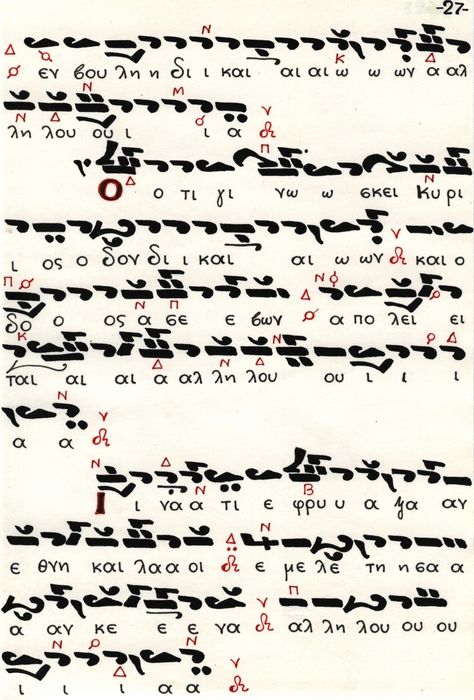 -27-
εν βου λη η δι ι και αι αι ω ω ων α αλ
λη λου ου ι ι α
Ο ο τι γι νω ω σκει Κυ ρι
ι ος ο δον δι ι και αι ω ων και ο
δο ο ος α σε ε βων α πο λει ει
ται αι αι α αλ λη λου ου ι ι ι
α α
Ι ι να α τι ε φρυ υ α ξα αν
ε θνη και λα α οι ε με λε τη η σα α
α αν κε ε ε να αλ λη λου ου ου
ι ι ι α α